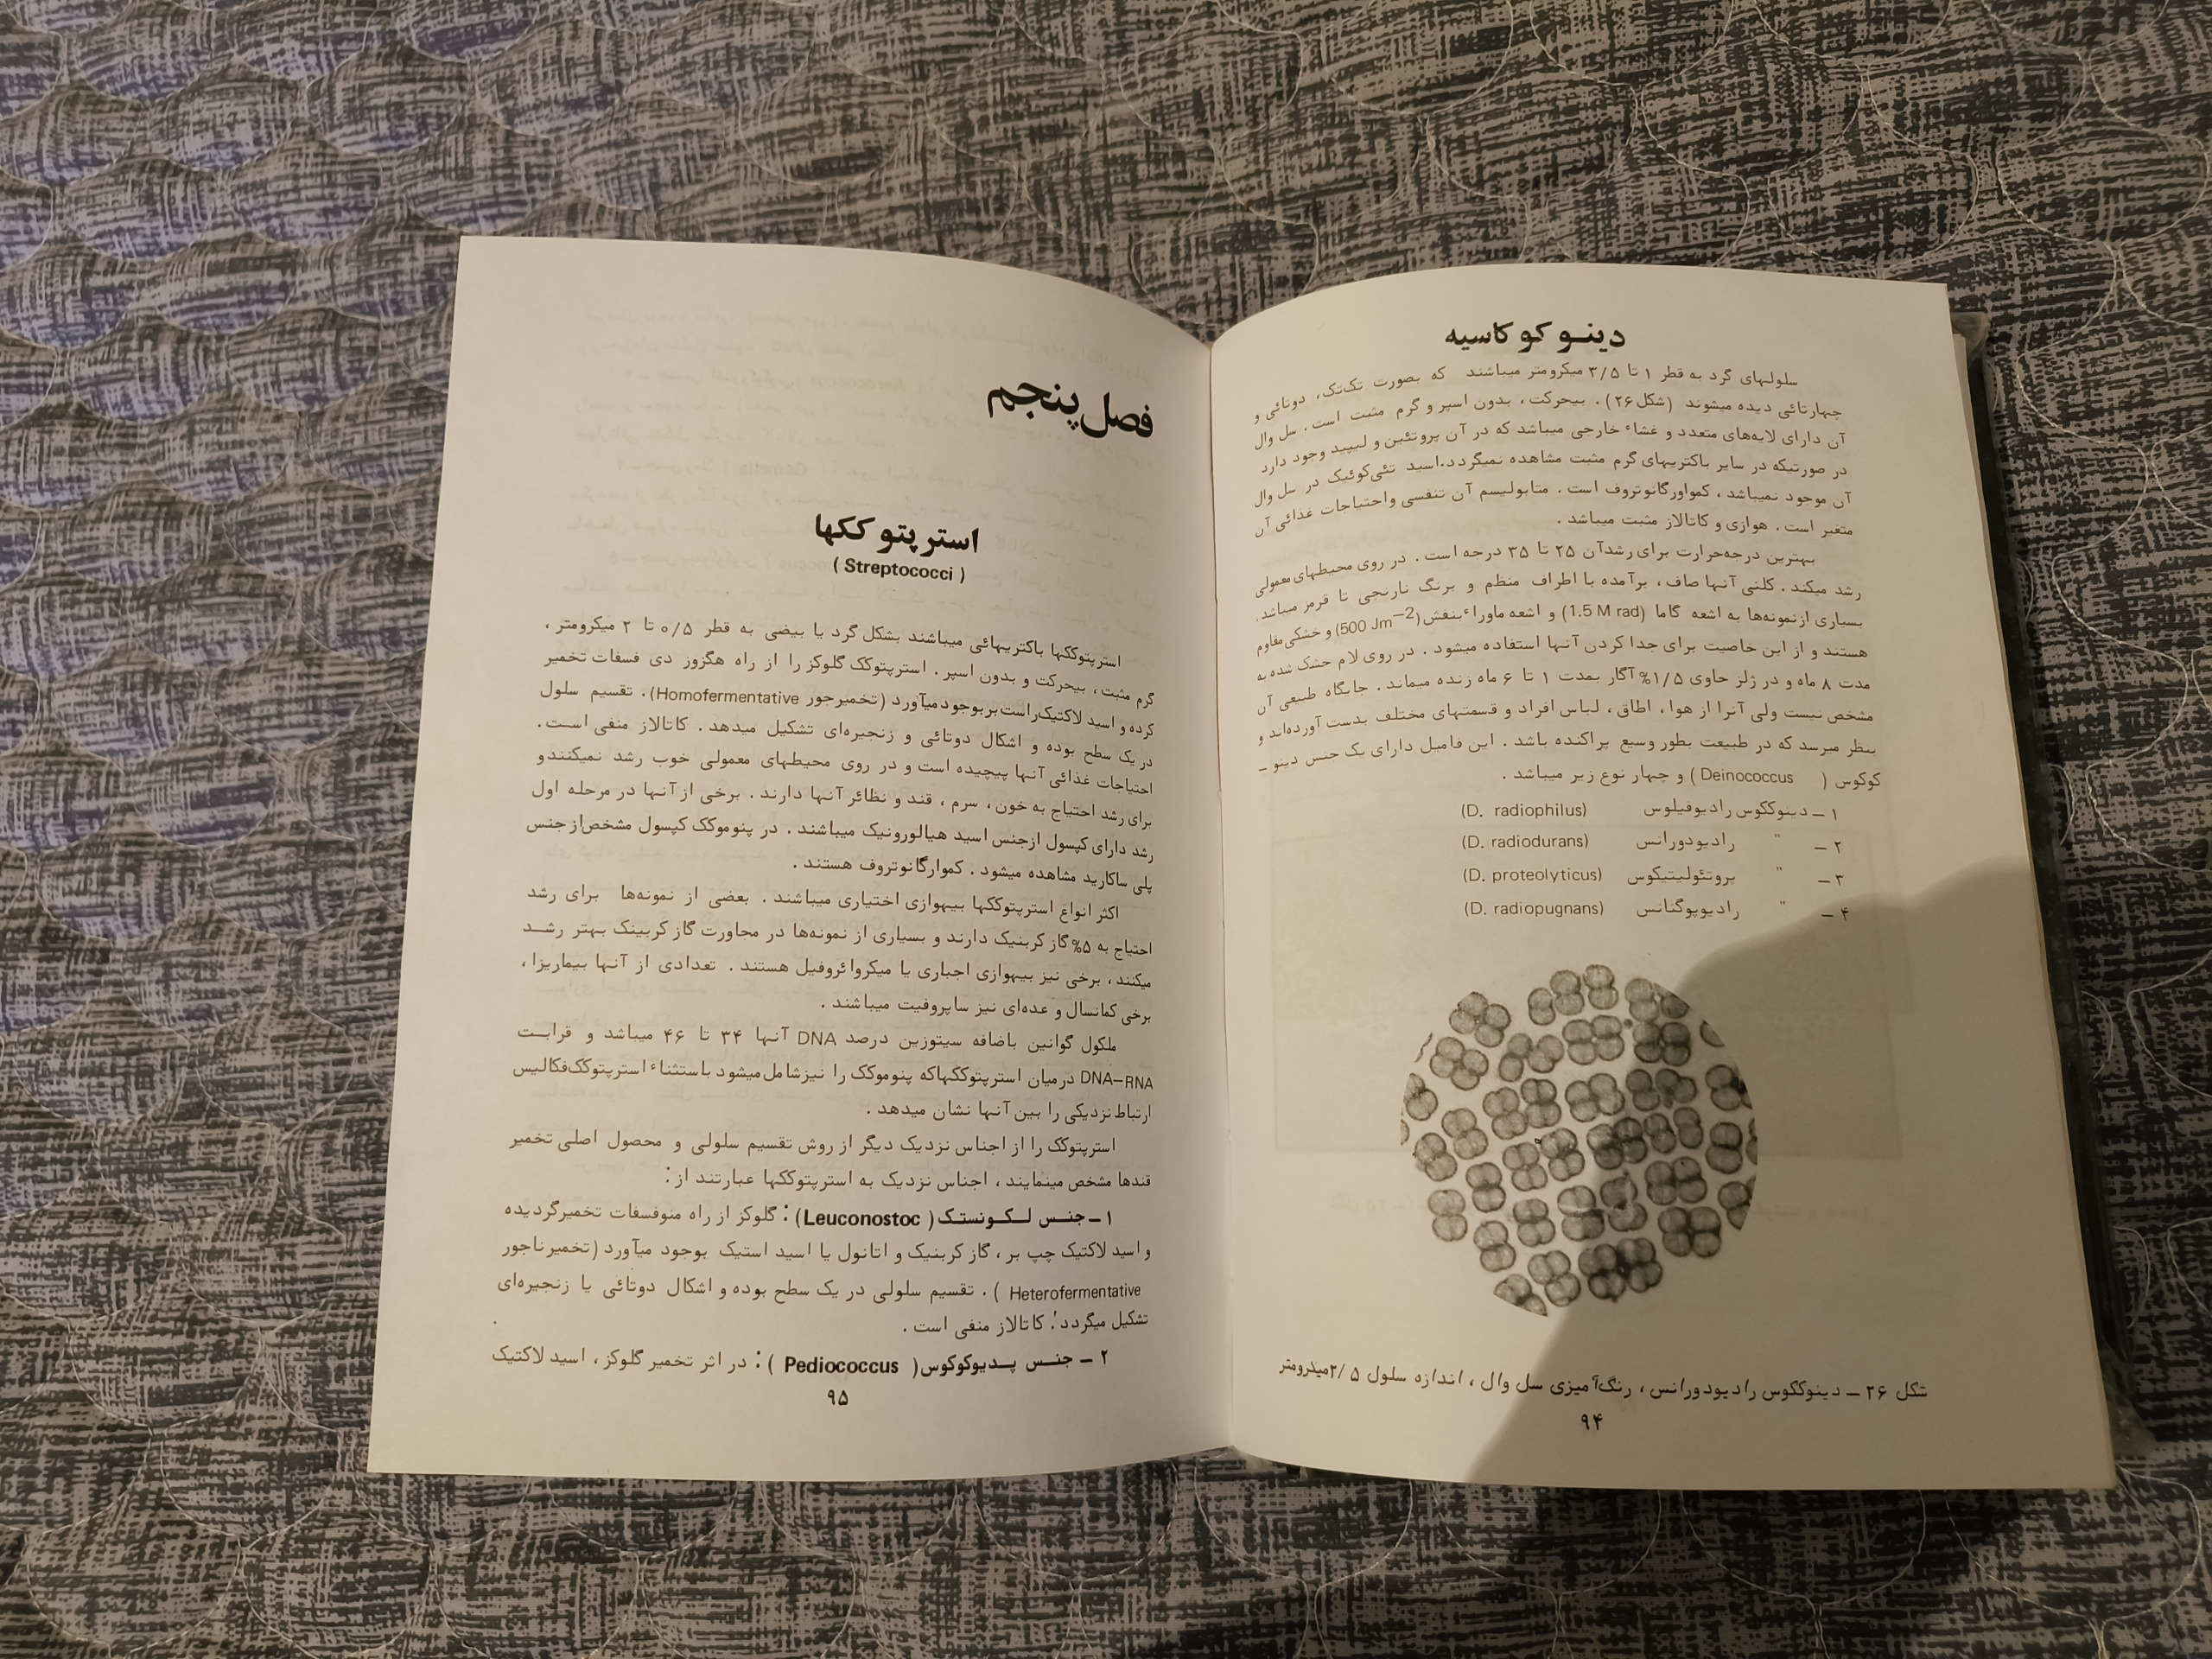 دینوکوکاسیه
سلولهای گرد به قطر ۱ تا ۳/۵ میکرومتر میباشند که بصورت تک‌تک، دوتائی و
چهارتائی دیده میشوند (شکل ۲۶). بیحرکت، بدون اسپر و گرم مثبت است. سل وال
آن دارای لایه‌های متعدد و غشاء خارجی میباشد که در آن پروتئین و لیپید وجود دارد
در صورتیکه در سایر باکتریهای گرم مثبت مشاهده نمیگردد.اسید تئی‌کوئیک در سل وال
آن موجود نمیباشد، کمواورگانوتروف است. متابولیسم آن تنفسی و احتیاجات غذائی آن
متغیر است. هوازی و کاتالاز مثبت میباشد.
بهترین درجه‌حرارت برای رشدآن ۲۵ تا ۳۵ درجه است. در روی محیطهای معمولی
رشد میکند. کلنی آنها صاف، برآمده با اطراف منظم و برنگ نارنجی تا قرمز میباشد.
بسیاری ازنمونه‌ها به اشعه گاما (1.5 M rad) و اشعه ماوراءبنفش (500 Jm−2) و خشکی مقاوم
هستند و از این خاصیت برای جدا کردن آنها استفاده میشود. در روی لام خشک شده به
مدت ۸ ماه و در ژلز حاوی ۱/۵% آگار بمدت ۱ تا ۶ ماه زنده میماند. جایگاه طبیعی آن
مشخص نیست ولی آنرا از هوا، اطاق، لباس افراد و قسمتهای مختلف بدست آورده‌اند و
بنظر میرسد که در طبیعت بطور وسیع پراکنده باشد. این فامیل دارای یک جنس دینو –
کوکوس ( Deinococcus ) و چهار نوع زیر میباشد.
۱ – دینوککوس رادیوفیلوس (D. radiophilus)
۲ – " رادیودورانس (D. radiodurans)
۳ – " پروتئولیتیکوس (D. proteolyticus)
۴ – " رادیوپوگنانس (D. radiopugnans)
شکل ۲۶ – دینوککوس رادیودورانس، رنگ‌آمیزی سل وال، اندازه سلول ۲/۵ میکرومتر
۹۴
فصل پنجم
استرپتوککها
( Streptococci )
استرپتوککها باکتریهائی میباشند بشکل گرد یا بیضی به قطر ۰/۵ تا ۲ میکرومتر،
گرم مثبت، بیحرکت و بدون اسپر. استرپتوکک گلوکز را از راه هگزوز دی فسفات تخمیر
کرده و اسید لاکتیک‌راست‌بر بوجود میآورد (تخمیرجور Homofermentative). تقسیم سلول
در یک سطح بوده و اشکال دوتائی و زنجیره‌ای تشکیل میدهد. کاتالاز منفی است.
احتیاجات غذائی آنها پیچیده است و در روی محیطهای معمولی خوب رشد نمیکنند و
برای رشد احتیاج به خون، سرم، قند و نظائر آنها دارند. برخی از آنها در مرحله اول
رشد دارای کپسول ازجنس اسید هیالورونیک میباشند. در پنوموکک کپسول مشخص‌از جنس
پلی ساکارید مشاهده میشود. کموارگانوتروف هستند.
اکثر انواع استرپتوککها بیهوازی اختیاری میباشند. بعضی از نمونه‌ها برای رشد
احتیاج به ۵% گاز کربنیک دارند و بسیاری از نمونه‌ها در مجاورت گاز کربینک بهتر رشد
میکنند، برخی نیز بیهوازی اجباری یا میکروائروفیل هستند. تعدادی از آنها بیماریزا،
برخی کمانسال و عده‌ای نیز ساپروفیت میباشند.
ملکول گوانین باضافه سیتوزین درصد DNA آنها ۳۴ تا ۴۶ میباشد و قرابت
DNA–RNA درمیان استرپتوککهاکه پنوموکک را نیزشامل میشود باستثناء استرپتوکک‌فکالیس
ارتباط نزدیکی را بین آنها نشان میدهد.
استرپتوکک را از اجناس نزدیک دیگر از روش تقسیم سلولی و محصول اصلی تخمیر
قندها مشخص مینمایند، اجناس نزدیک به استرپتوککها عبارتند از:
۱ – جنس لکونستک (Leuconostoc): گلوکز از راه منوفسفات تخمیرگردیده
و اسید لاکتیک چپ بر، گاز کربنیک و اتانول یا اسید استیک بوجود میآورد (تخمیرناجور
Heterofermentative ). تقسیم سلولی در یک سطح بوده و اشکال دوتائی یا زنجیره‌ای
تشکیل میگردد: کاتالاز منفی است.
۲ – جنس پدیوکوکوس ( Pediococcus ): در اثر تخمیر گلوکز، اسید لاکتیک
۹۵